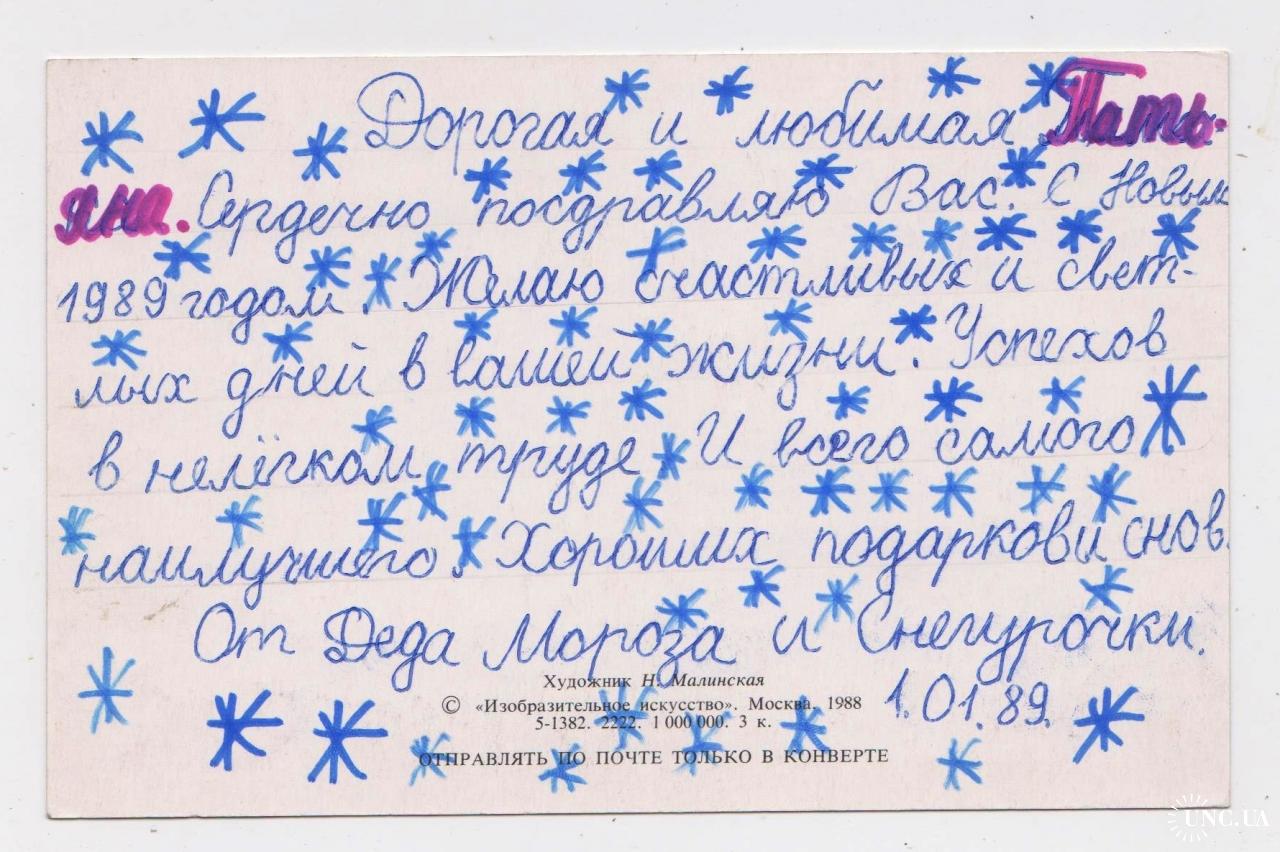 Дорогая и любимая Тать-
яна. Сердечно поздравляю Вас. С Новым
1989 годом. Желаю счастливых и свет-
лых дней в вашей жизни. Успехов
в нелёгком труде. И всего самого
наилучшего. Хороших подарков и снов.
От Деда Мороза и Снегурочки.
1.01.89.
Художник Н. Малинская
© «Изобразительное искусство». Москва. 1988
5-1382. 2222. 1 000 000. 3 к.
ОТПРАВЛЯТЬ ПО ПОЧТЕ ТОЛЬКО В КОНВЕРТЕ
UNC.UA